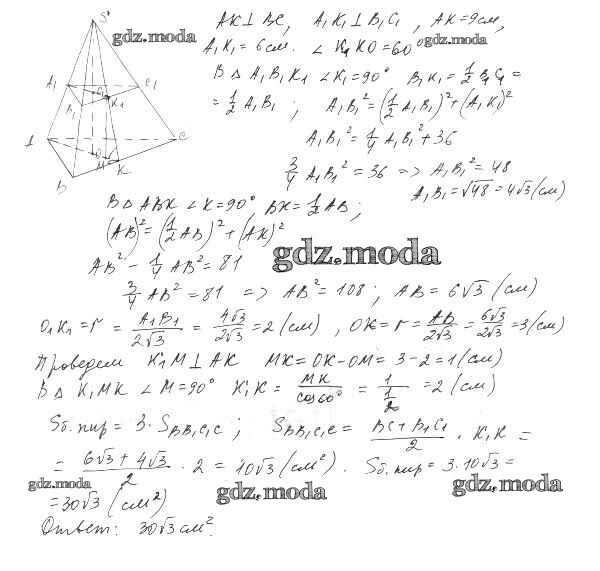 S
AK ⊥ BC, A₁K₁ ⊥ B₁C₁, AK = 9 см,
gdz.moda
A₁K₁ = 6 см. ∠ K₁KO = 60°
gdz.moda
A₁ C₁ C₁
B₁ K₁
В Δ A₁B₁K₁ ∠K₁ = 90° B₁K₁ = 1/2 B₁C₁ =
= 1/2 A₁B₁ ; A₁B₁² = (1/2 A₁B₁)² + (A₁K₁)²
A₁B₁² = 1/4 A₁B₁² + 36
A C
O
M K
B
3/4 A₁B₁² = 36 => A₁B₁² = 48
A₁B₁ = √48 = 4√3 (см)
В Δ ABK ∠K = 90° BK = 1/2 AB;
(AB)² = (1/2 AB)² + (AK)²
gdz.moda
AB² - 1/4 AB² = 81
3/4 AB² = 81 => AB² = 108 ; AB = 6√3 (см)
O₁K₁ = r = A₁B₁/2√3 = 4√3/2√3 = 2 (см) , OK = r = AB/2√3 = 6√3/2√3 = 3 (см)
Проведем K₁M ⊥ AK MK = OK - OM = 3 - 2 = 1 (см)
В Δ K₁MK ∠M = 90° K₁K = MK/cos 60° = 1/(1/2) = 2 (см)
Sб.пир = 3 · S BB₁C₁C ; S BB₁C₁C = (BC + B₁C₁)/2 · K₁K =
= (6√3 + 4√3)/2 · 2 = 10√3 (см²) . Sб.пир = 3 · 10√3 =
gdz.moda
gdz.moda
gdz.moda
= 30√3 (см²)
Ответ: 30√3 см².